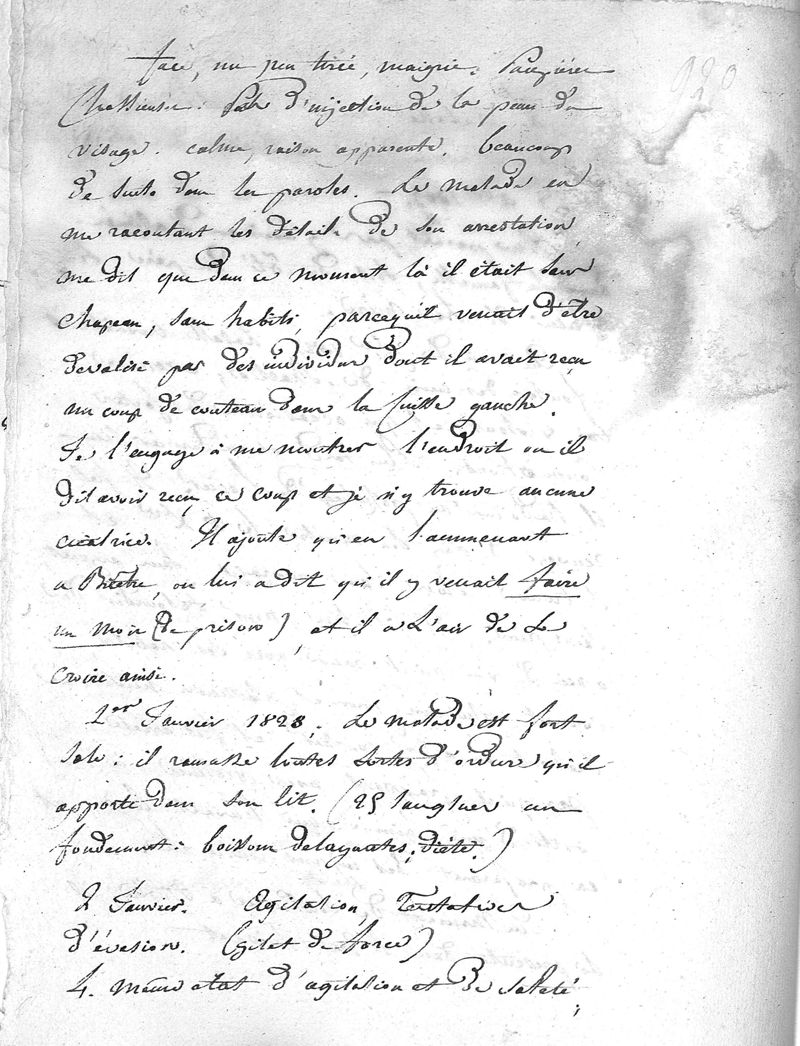 face, un peu tirée, maigrie. Paupières
Chassieuses. Pas d'injection de la peau du
visage. calme, raison apparente. beaucoup
de suite dans les paroles. Le malade en
me racontant les détails de son arrestation,
me dit que dans ce moment là il était sans
chapeau, sans habits, parcequ'il venait d'être
devalisé par des individus dont il avait reçu
un coup de couteau dans la cuisse gauche.
Je l'engage à me montrer l'endroit ou il
dit avoir reçu ce coup et je n'y trouve aucune
cicatrice. Il ajoute qu'en l'emmenant
a Bicêtre, on lui a dit qu'il y venait faire
un mois (de prison), et il a l'air de le
croire ainsi.
1er Janvier 1828. Le malade est fort
sale : il ramasse toutes sortes d'ordures qu'il
apporte dans son lit. (25 sangsues au
fondement : boissons delayantes, diète.)
2 Janvier. Agitation, Tentatives
d'évasion. (gilet de force)
4. même état d'agitation et de saleté,